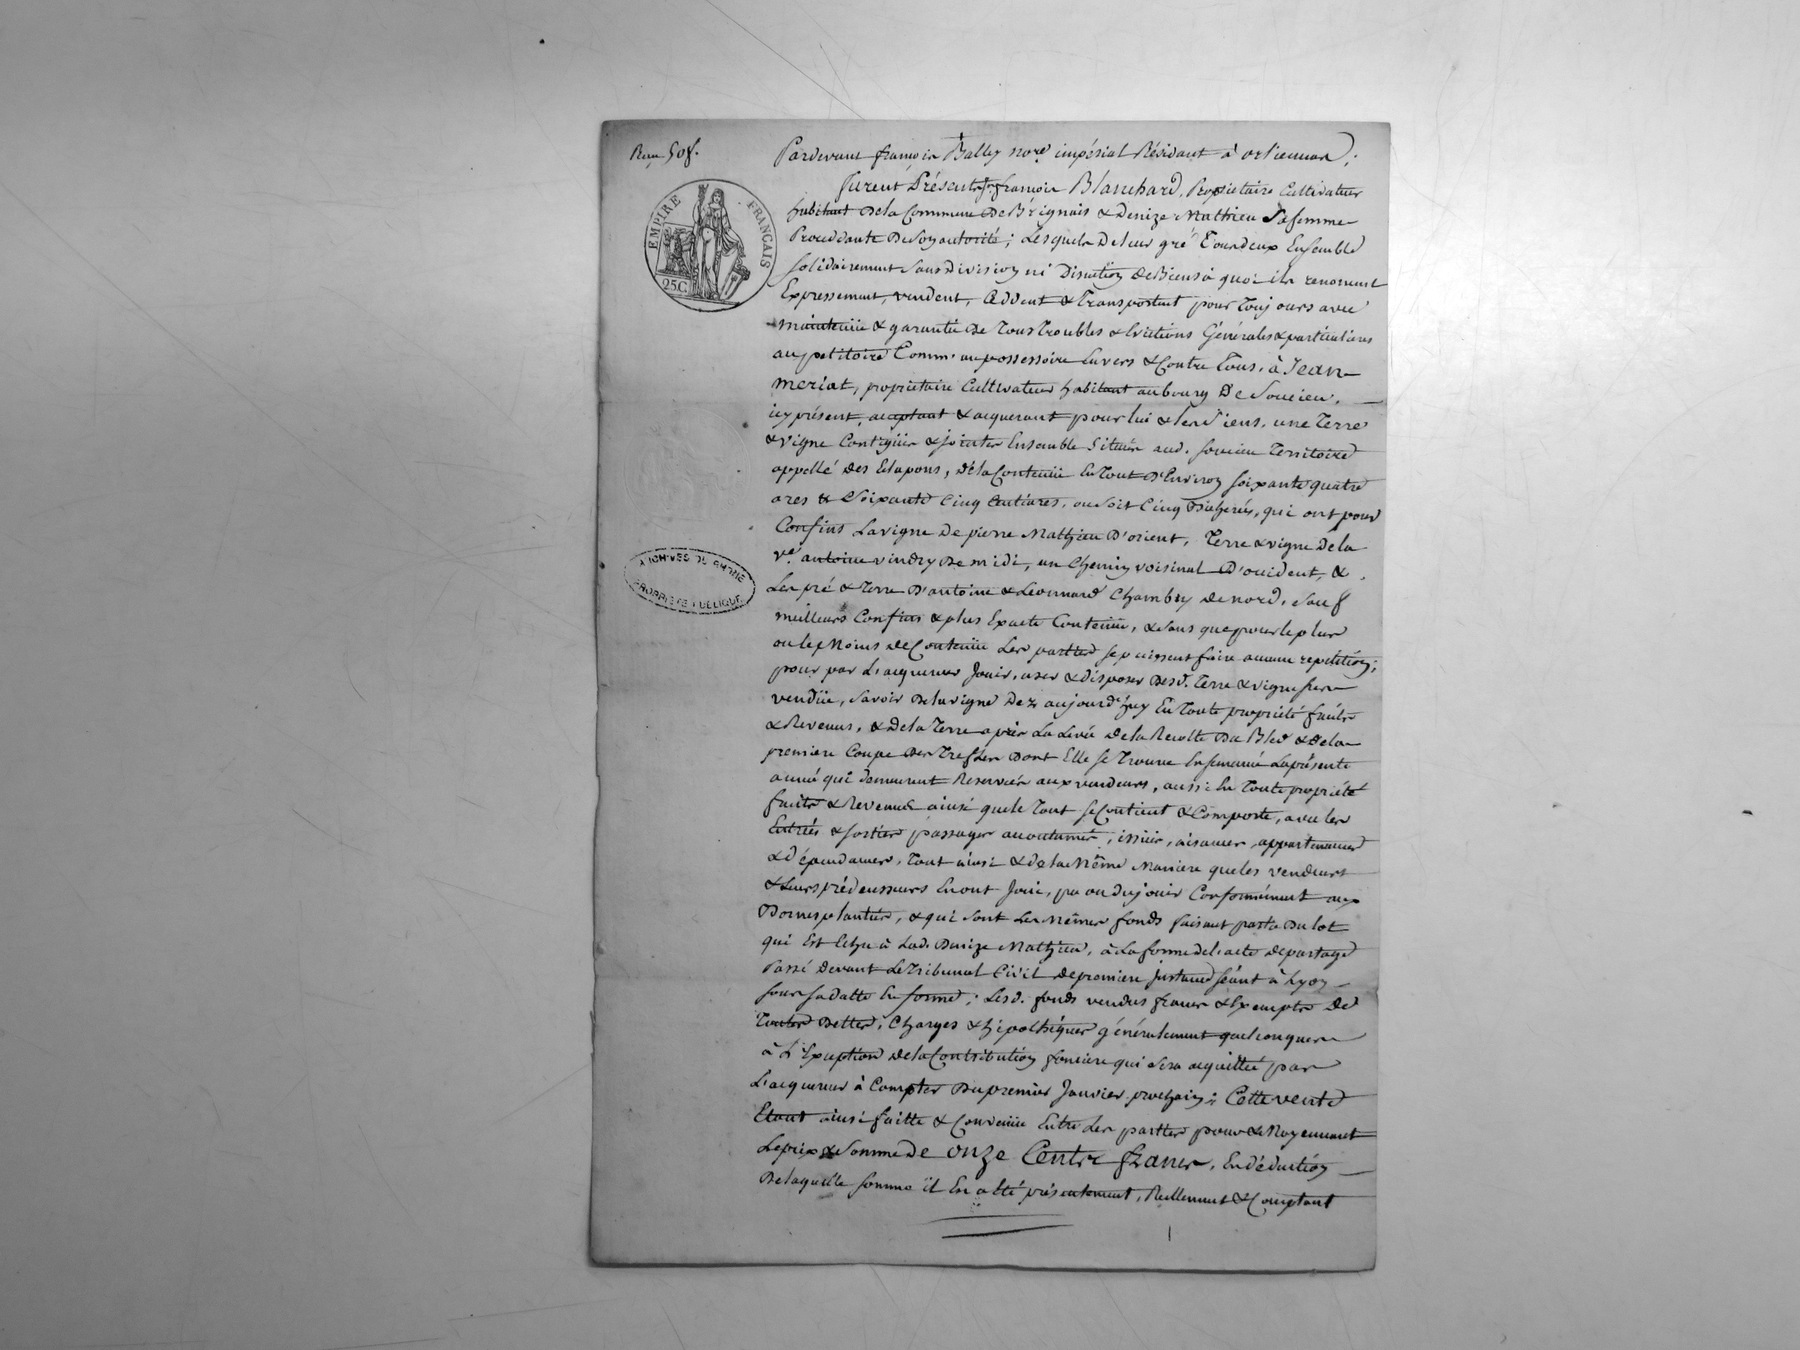 Pardevant françois Bally no.re impérial Résidant à orliennas ;
furent Présents S.r françois Blanchard, Propriétaire Cultivateur
habitant De la Commune De Brignais & Denize Mathieu Sa femme
Procédante De Son autorité ; Lesquels De leur gré Tous deux Ensemble
solidairement Sans Division ni Discution De Biens à quoi ils renoncent
Expressement, vendent, Cèddent & Transportent pour Toujours avec
maintenüe & garantie De Tous Troubles & Evictions Générales & particulières
au petitoire Comm' au possessoire Envers & Contre Tous, à Jean
meriat, propriétaire Cultivateur habitant au bourg De Soucieu,
icy présent, acceptant & acquerant pour lui & les Siens, une Terre
& vigne Contigües & jointes Ensemble Situées aud. Soucieu Territoire
appellé des Etapons, De la Contenüe En Tout D'Environ Soixante quatre
ares & Soixante Cinq Centiares, ou soit Cinq Bicherés, qui ont pour
Confins La vigne De pierre Mathieu D'orient, Terre & vigne De la
v.e antoine vindry De midi, un Chemin voisinal D'occident, &
Les pré & Terre D'antoine & Léonnard Chambry de nord, Sauf
meilleurs Confins & plus Exacte Contenüe, & sans que pour le plus
ou le Moins de Contenüe Les parties se puissent faire aucune repetition ;
pour par L'acquereur Jouir, user & disposer Desd. Terre & vigne
vendüe, Savoir De la vigne Dez aujourd'huy En Toute propriété fruits
& Revenus, & De la Terre après La Levée de la Recolte Du Bled & de la
premiere Coupe Des Trefles Dont Elle se Trouve Ensemencé La présente
année qui demeurent Reservées aux vendeurs, aussi En Toute propriété
fruits & Revenus ainsi que le Tout se Contient & Comporte, avec les
Entrées & sorties passages accoutumés, issües, aisances, appartenances
& dépendances, Tout ainsi & De la Même Maniere que les vendeurs
& Leurs prédecesseurs En ont Joui, pu ou Du jouir Conformément aux
Bornes plantées, & qui sont Les Mêmes fonds faisant partie Du lot
qui Est Echu à Lad. Denize Mathieu, à La forme de L'acte de partage
Passé Devant Le Tribunal Civil de premiere Instance Séant à Lyon
sous Sa datte En forme ; Lesd. fonds vendus francs & Exempts De
Toutes Dettes, Charges & hipothéques généralement quelconques
à L'Exception de la Contribution fonciere qui sera acquittée par
L'acquereur à Compter Du premier Janvier prochain ; Cette vente
Etant ainsi faitte & Convenüe Entre Les parties pour & Moyennant
Le prix & Somme De onze Cents francs, En déduction
De laquelle somme il En a été présentement, Réellement & Comptant
EMPIRE FRANÇAIS
25C
ARCHIVES DU RHONE
PROPRIETE PUBLIQUE